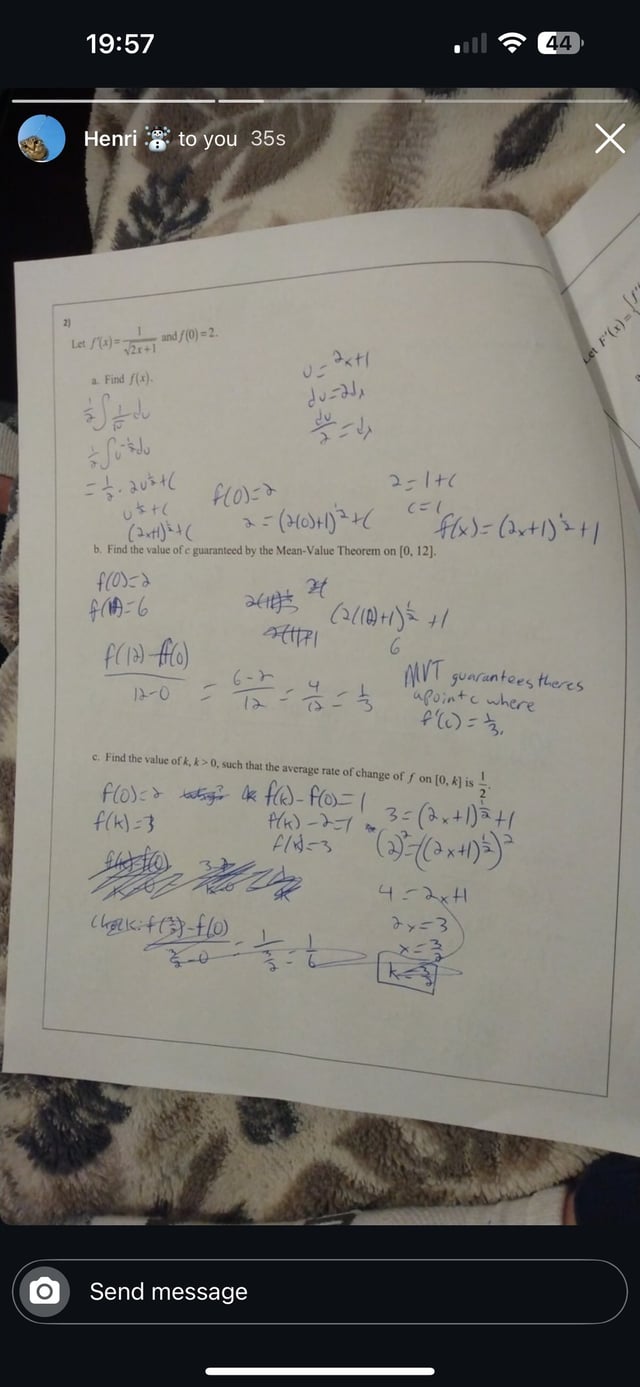 19:57
44
Henri ☃️ to you 35s
2)
Let f'(x) = 1/√(2x+1) and f(0) = 2.
a. Find f(x).
u = 2x+1
du = 2dx
du/2 = dx
½ ∫ 1/√u du
½ ∫ u^-½ du
= ½ · 2u^½ + C
u^½ + C
(2x+1)^½ + C
f(0) = 2
2 = (2(0)+1)^½ + C
2 = 1 + C
C = 1
f(x) = (2x+1)^½ + 1
b. Find the value of c guaranteed by the Mean-Value Theorem on [0, 12].
f(0) = 2
f(12) = 6
(2(12)+1)^½ + 1
6
f(12) - f(0) / 12-0 = 6-2 / 12 = 4/12 = 1/3
MVT guarantees theres
a point c where
f'(c) = 1/3.
c. Find the value of k, k > 0, such that the average rate of change of f on [0, k] is 1/2.
f(0) = 2
f(k) = 3
f(k) - f(0) = 1
f(k) - 2 = 1
f(k) = 3
3 = (2x+1)^½ + 1
(2)² = ((2x+1)^½)²
4 = 2x+1
2x = 3
x = 3/2
k = 3/2
Check: f(3/2) - f(0) / 3/2 - 0 = 1 / 3/2 = 1/6
Let F'(x) =
Send message